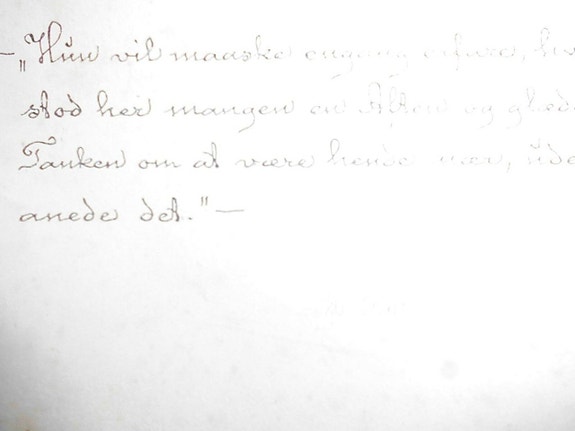 — „Hun vil maaske engang erfare, hv
stod her mangen en Aften og glæd
Tanken om at være hende nær, ude
anede det." —